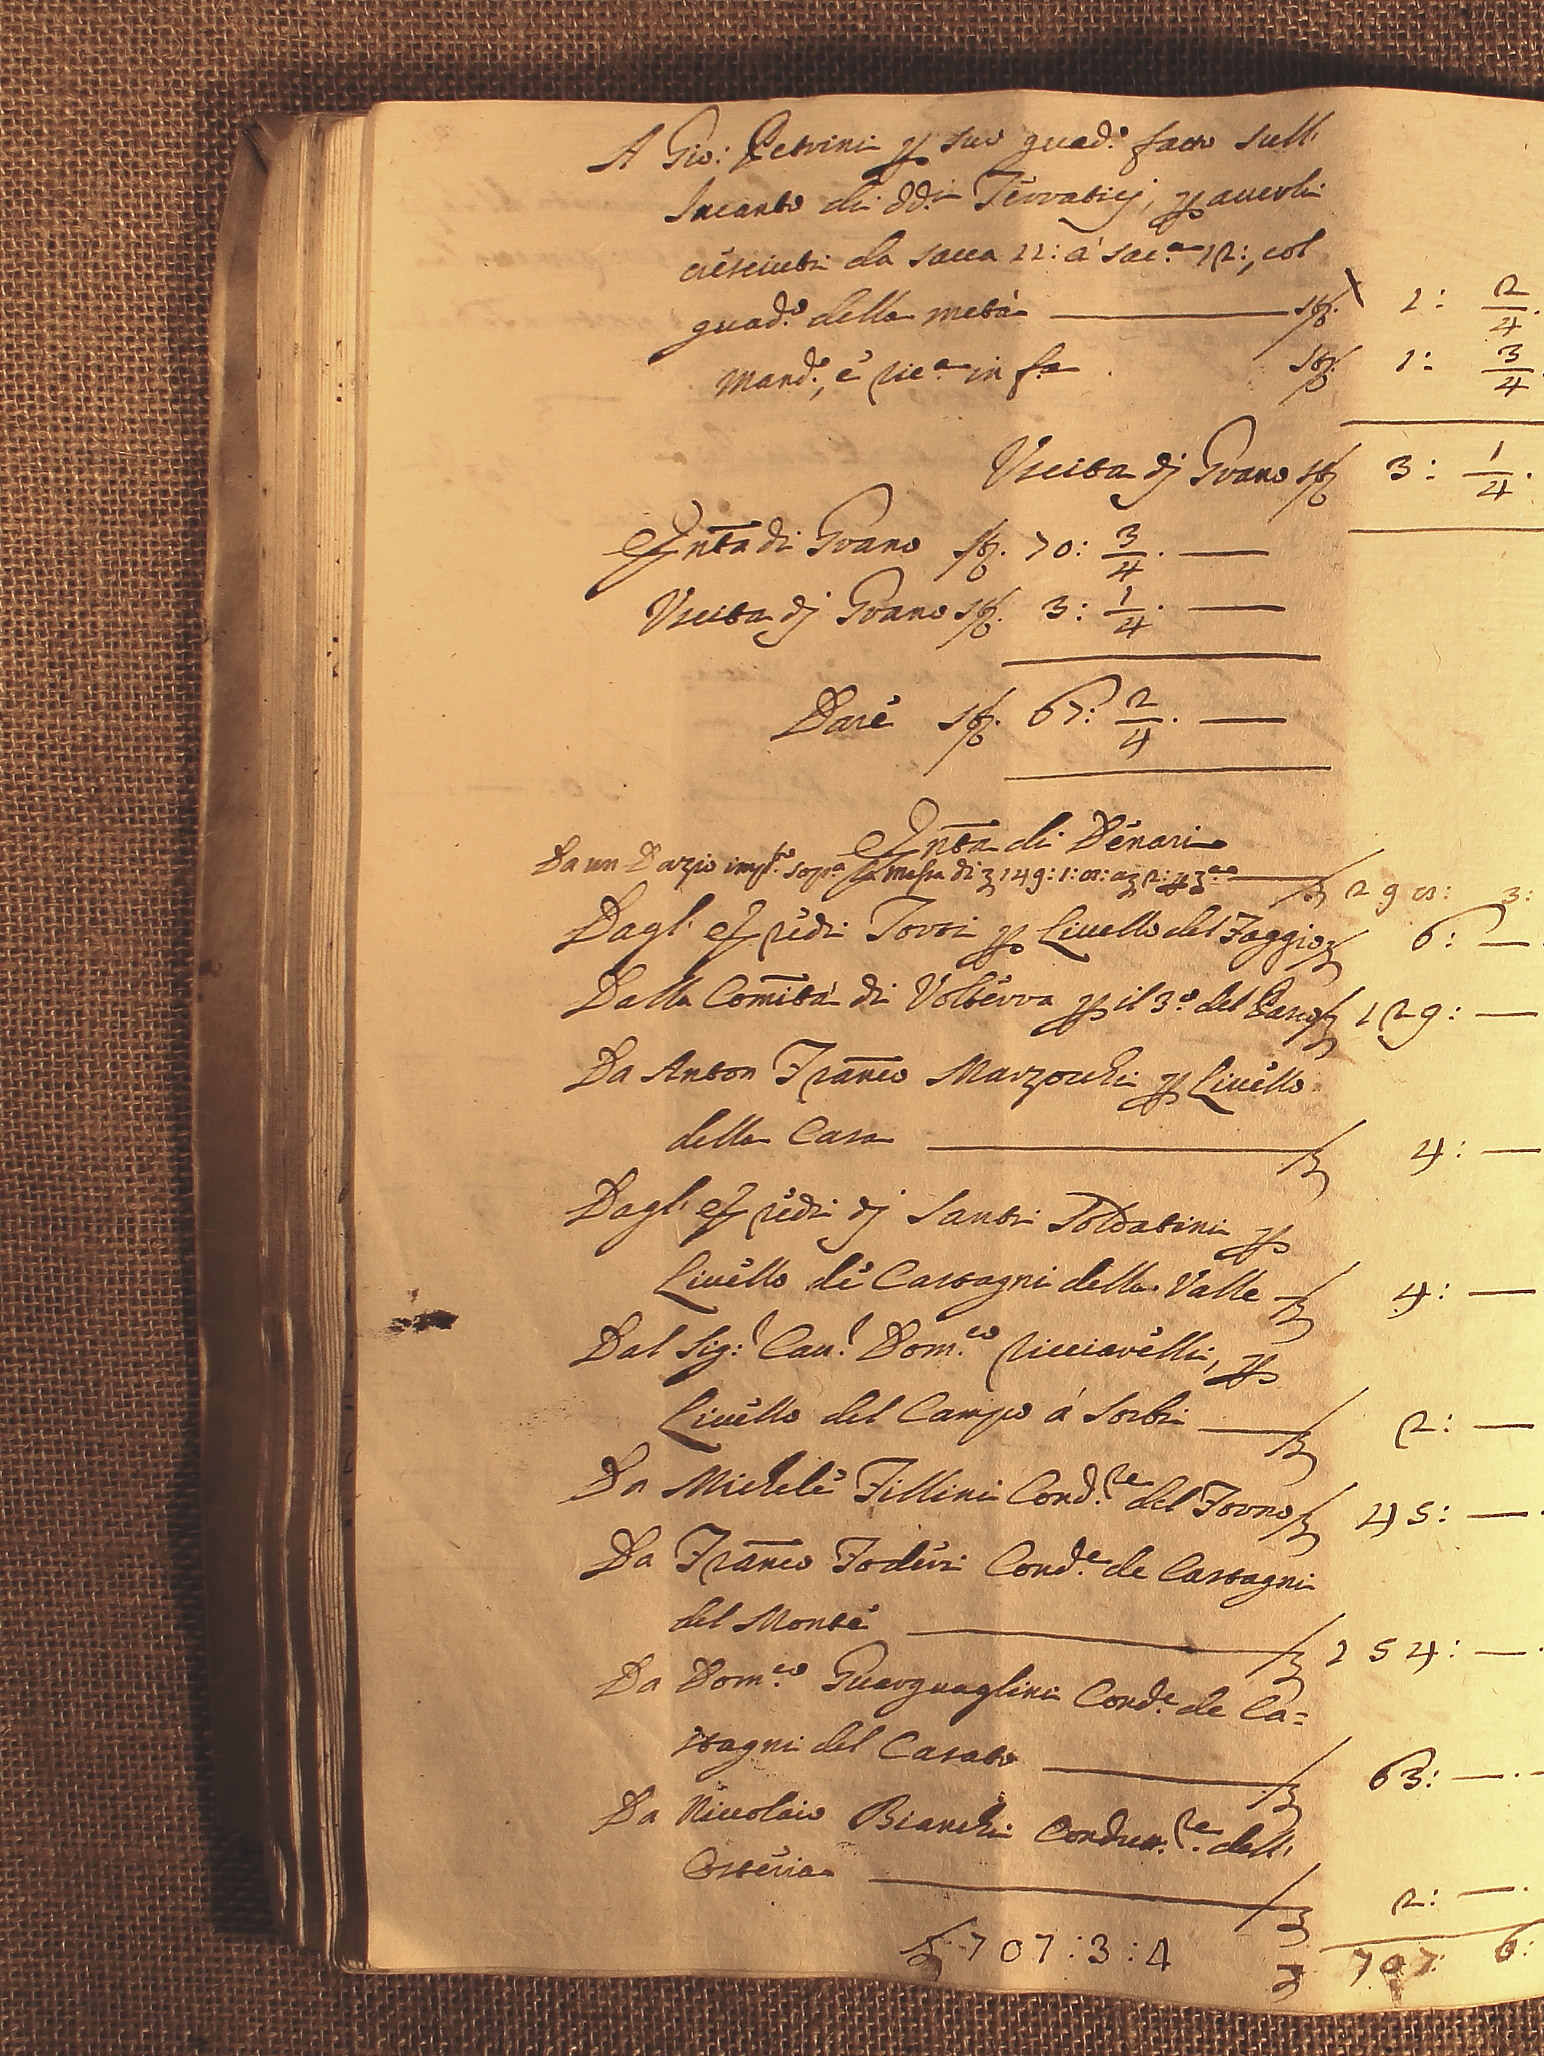 A Gio: Petrini p suo guad.o fatto sull'
Incanto di dd.i Terratici, p averli
cresciuti da sacca 11: à sac.a 12:, col
guad.o della metà —— 1: 2/4.
Mand.o, e ric.a in f.a 1: 3/4
Uscita dj Grano 3: 1/4.
Entta di Grano 70: 3/4. —
Uscita dj Grano 3: 1/4. —
Dare 67: 2/4. —
Entta di Denari
Da un Dazio imp.to sop.a la massa di 149:1: —— 3:
Dagl' Eredi Torri p Livello del Faggio 6: —
Dalla Comità di Volterra p il 3.o del 129: —
Da Anton Franco Marzocchi p Livello
della Casa —— 4: —
Dagl' Eredi dj Santi Soldatini p
Livello de Castagni della Valle — 4: —
Dal Sig.r Cav.r Dom.co Ricciarelli, p
Livello del Campo à Sorbi —— 2: —
Da Michele Fillini Cond.re del Forno 45: —
Da Franco Foderi Cond.e de Castagni
del Monte —— 254: —
Da Dom.co Guarguaglini Cond.e de Ca=
stagni del Casato —— 63: —
Da Niccolaio Bianchi Condut.re dell'
Osteria —— 2: —
707:3:4 707: 6: